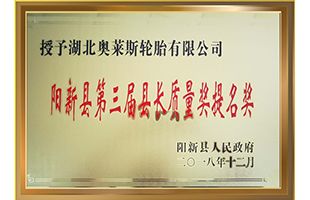 授予湖北奥莱斯轮胎有限公司
阳新县第三届县长质量奖提名奖
阳新县人民政府
二〇一八年十二月